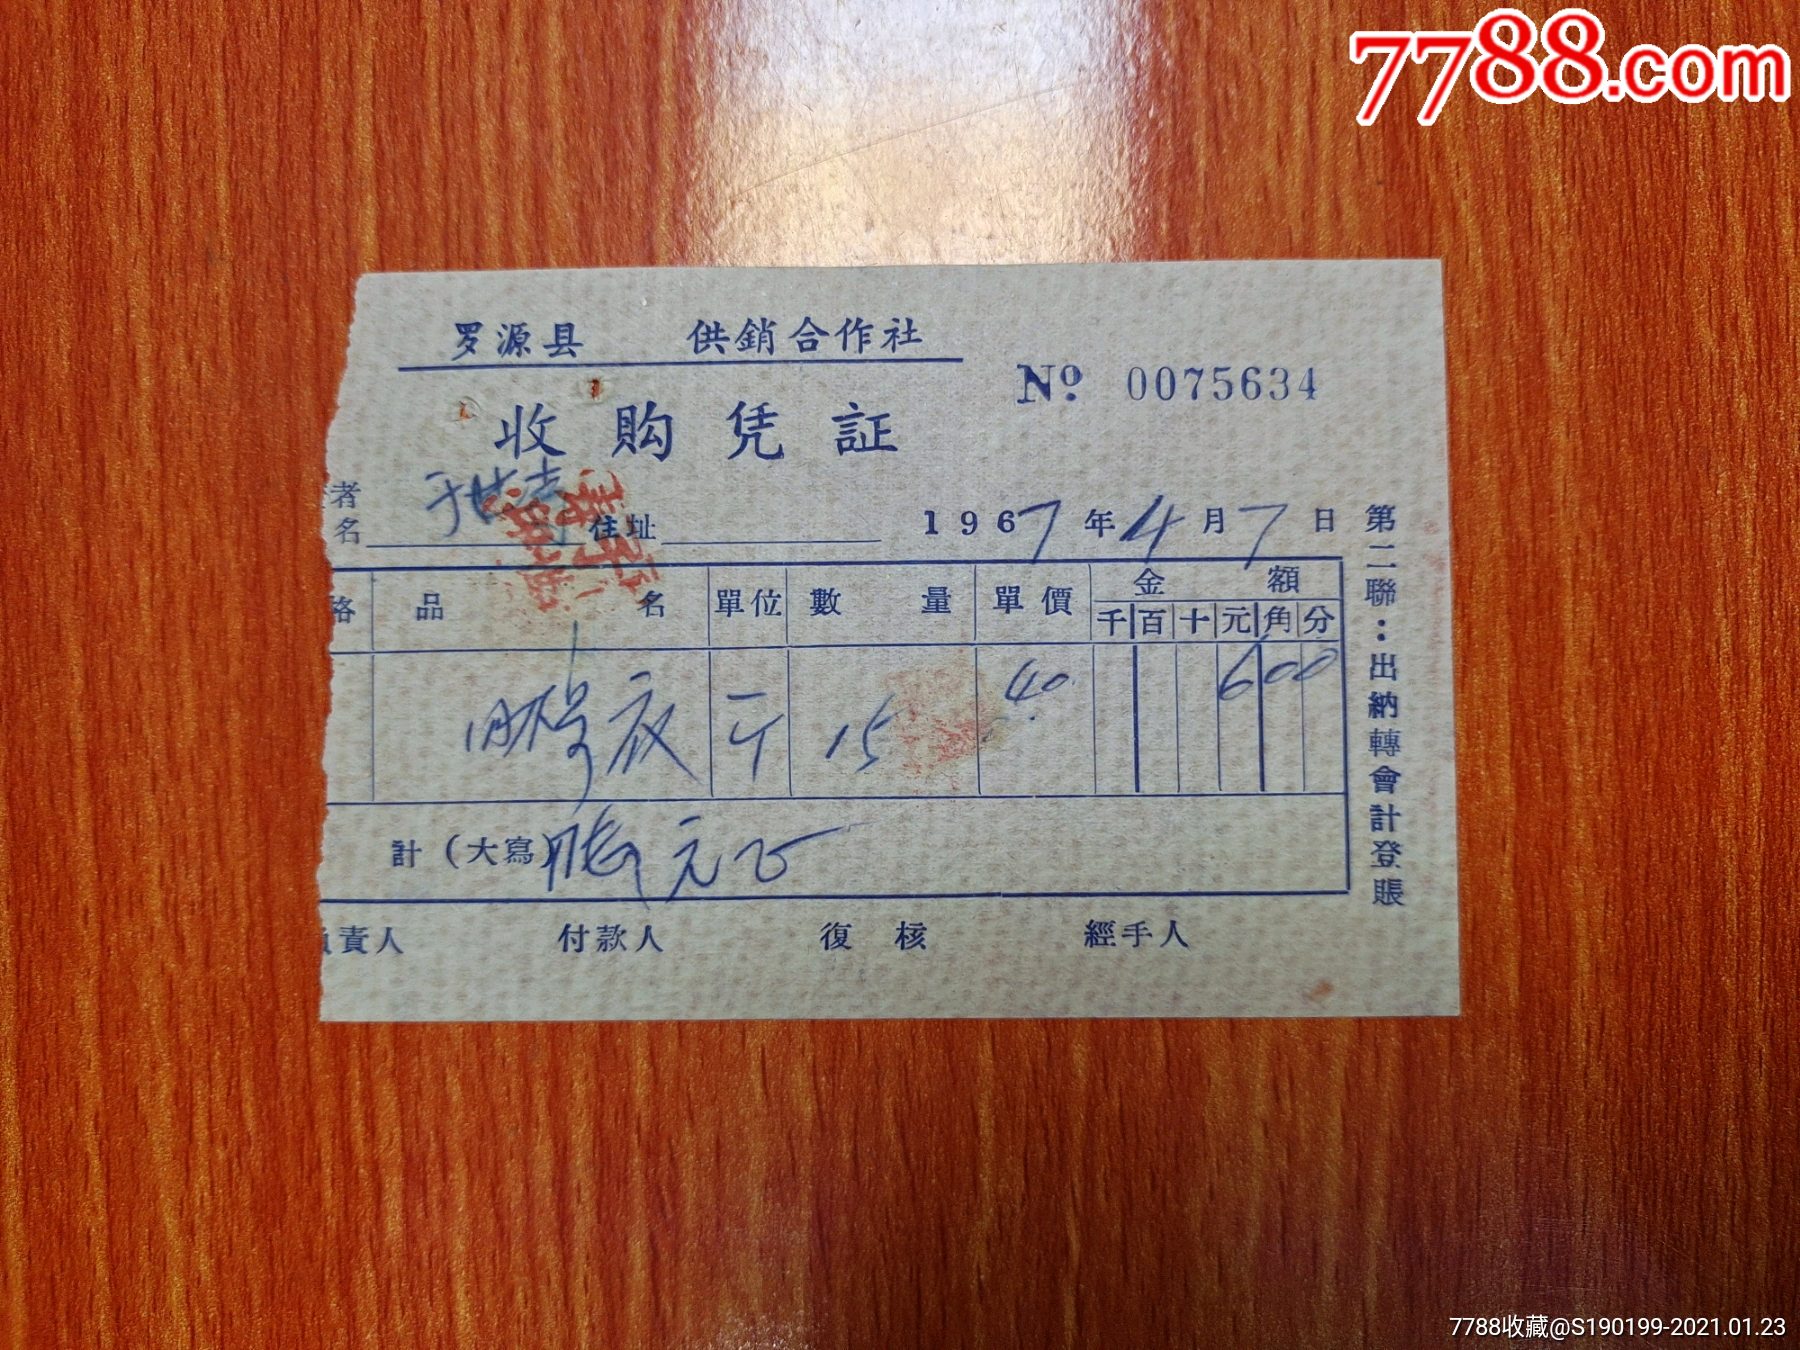 7788.com
罗源县 供銷合作社
收购凭証
№ 0075634
者
名 住址 1967年4月7日
格 品名 單位 數量 單價 金額
千 百 十 元 角 分
斤 15 40 600
計（大寫） 元正
負責人 付款人 復核 經手人
第二聯：出納轉會計登賬
7788收藏@S190199-2021.01.23